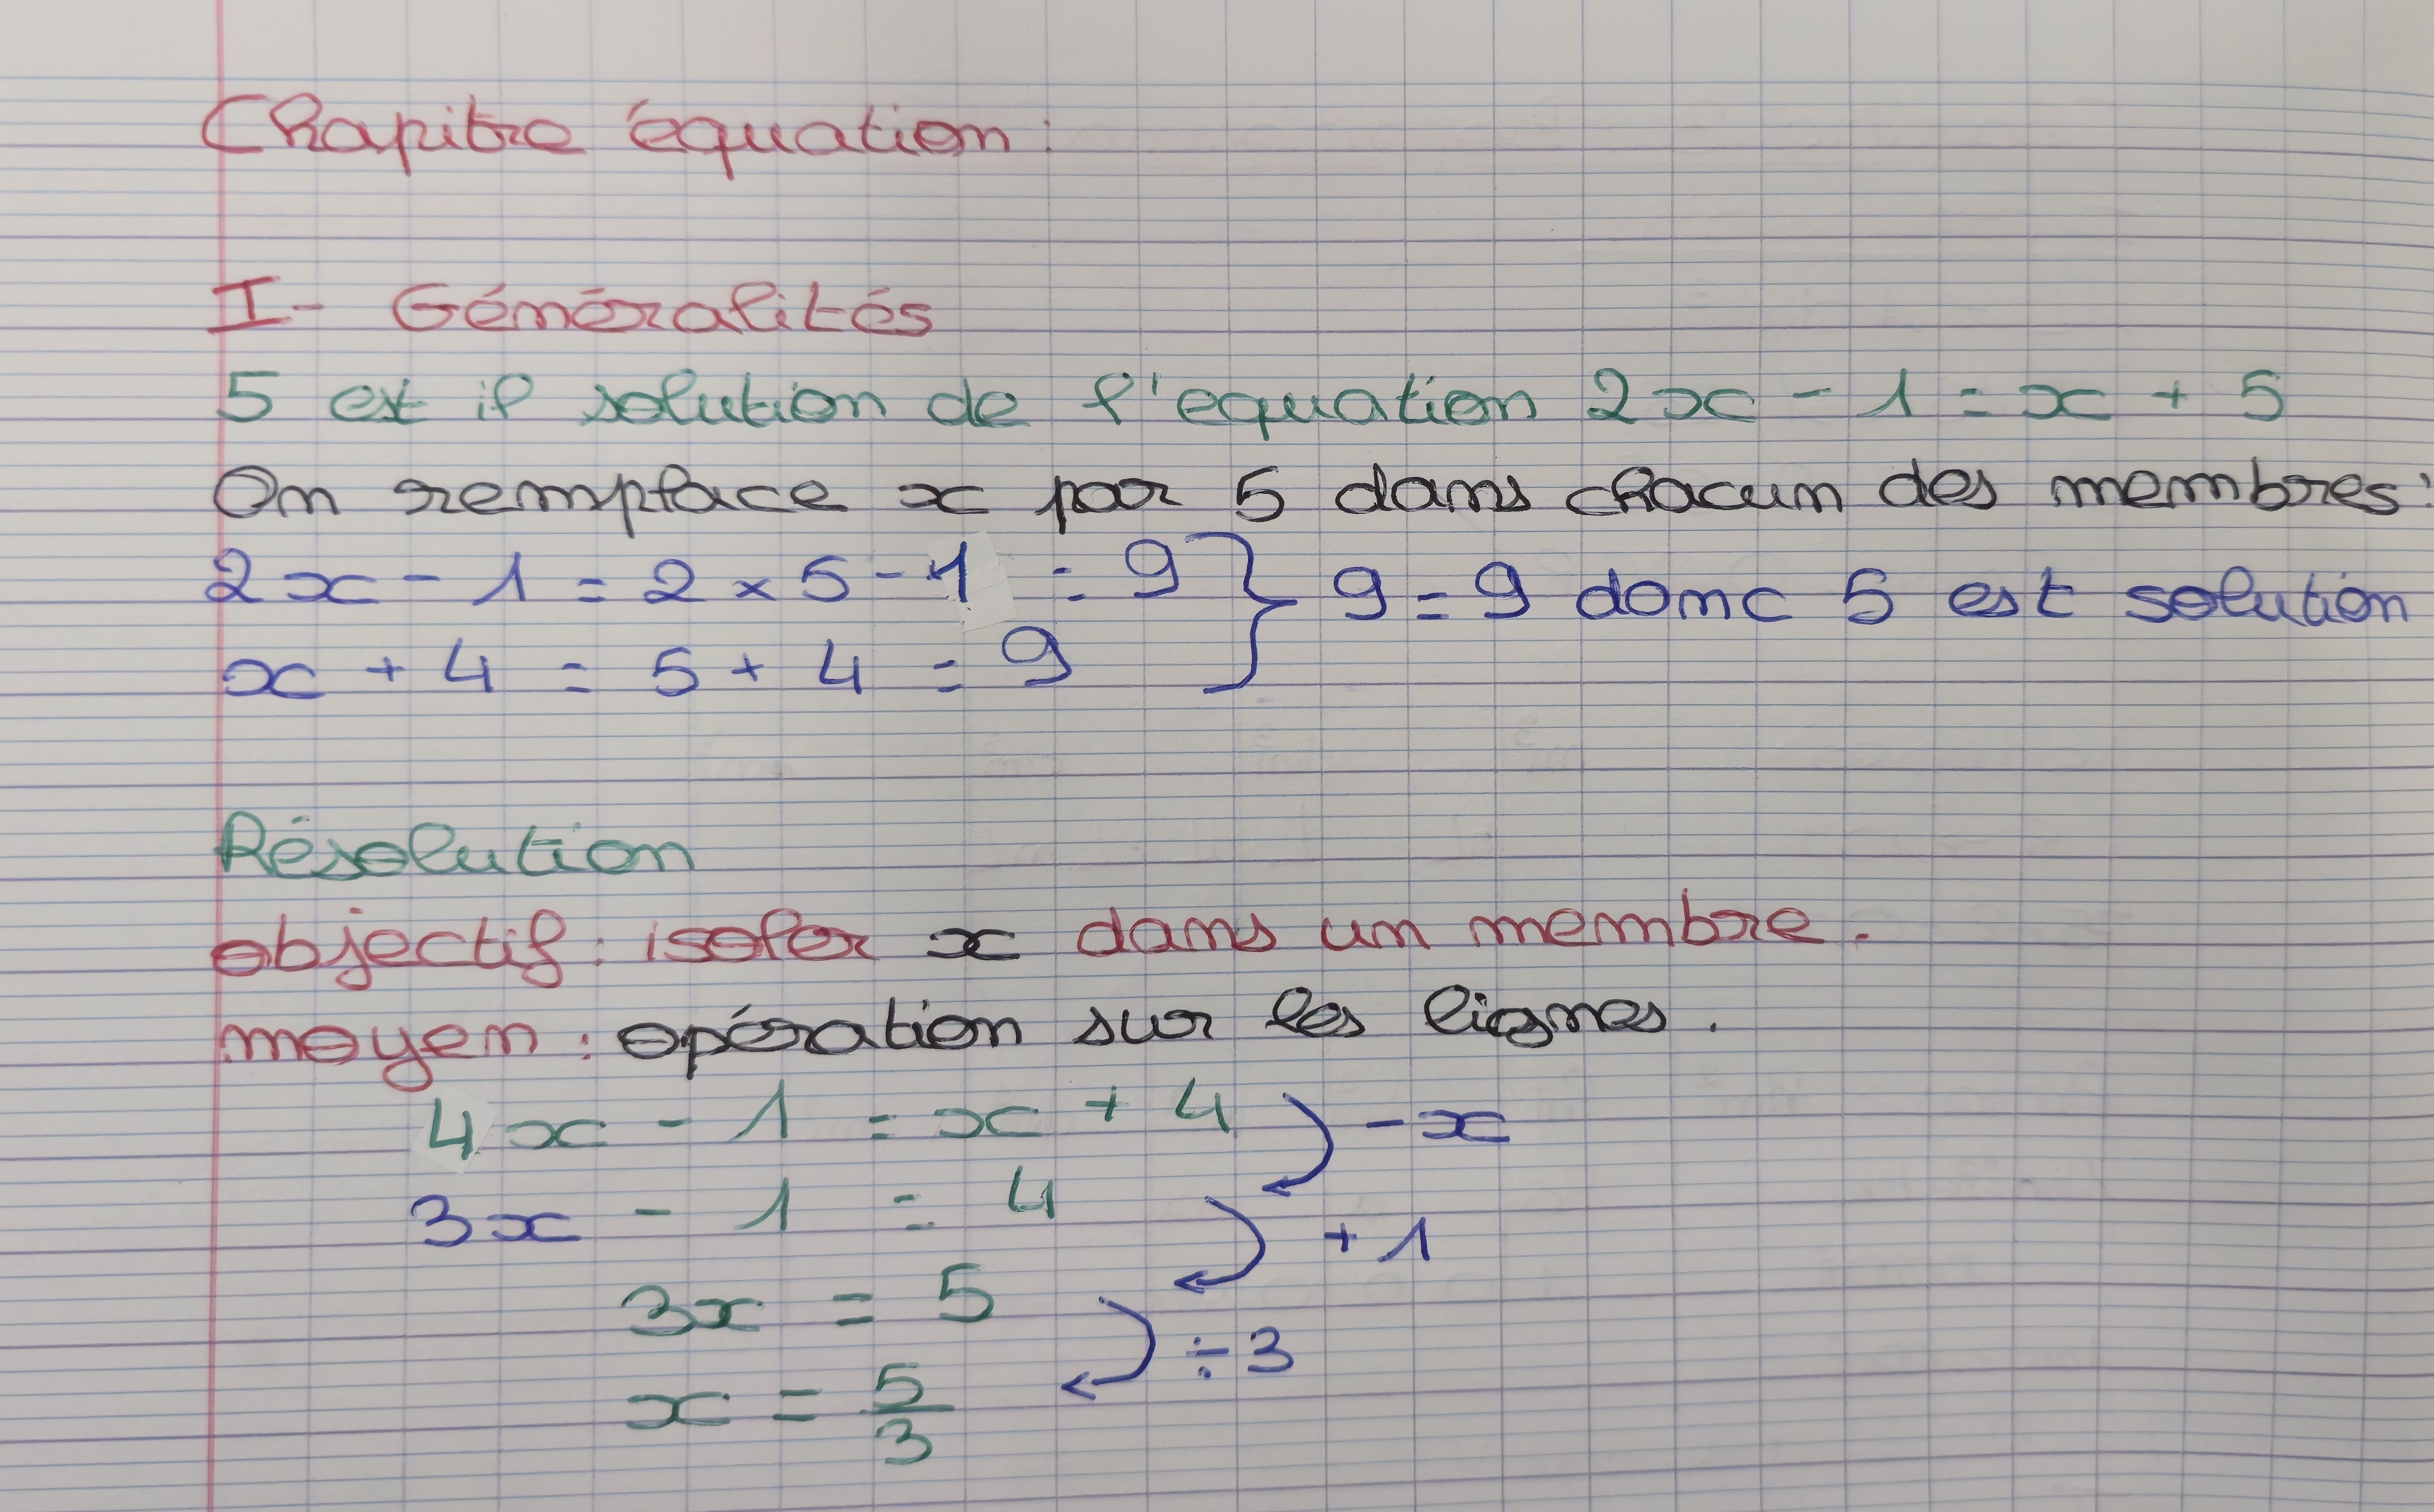 Chapitre équation :
I- Généralités
5 est il solution de l'equation 2x - 1 = x + 5
On remplace x par 5 dans chacun des membres :
2x - 1 = 2 × 5 - 1 = 9 } 9 = 9 donc 5 est solution
x + 4 = 5 + 4 = 9
Résolution
objectif : isoler x dans un membre.
moyen : opération sur les lignes.
4x - 1 = x + 4 - x
3x - 1 = 4 + 1
3x = 5 ÷ 3
x = 5/3